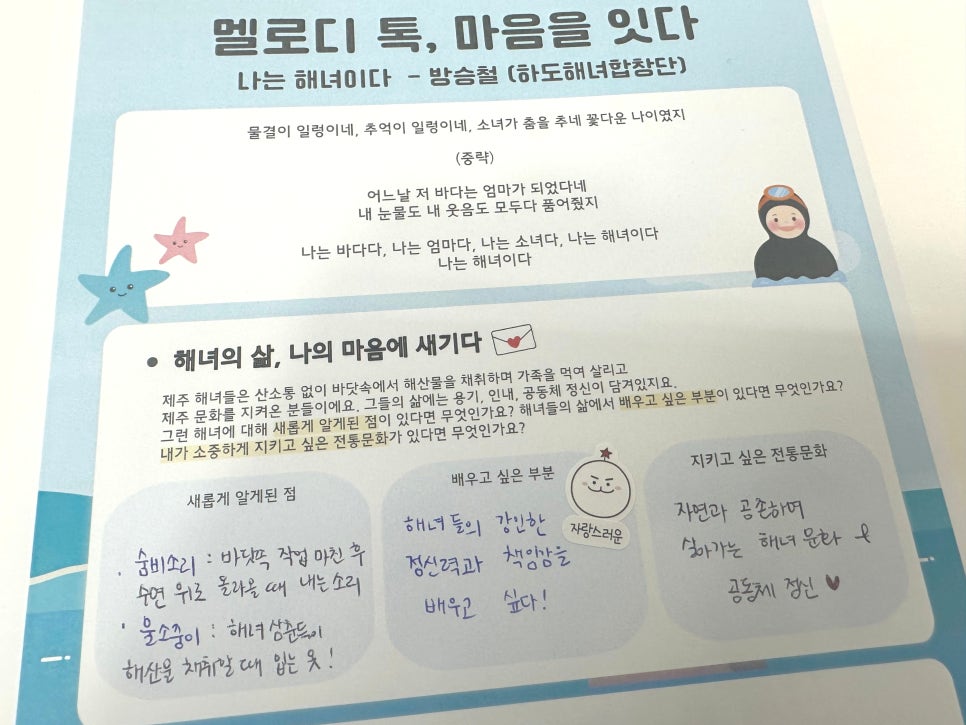 멜로디 톡, 마음을 잇다
나는 해녀이다 - 방승철 (하도해녀합창단)
물결이 일렁이네, 추억이 일렁이네, 소녀가 춤을 추네 꽃다운 나이였지
(중략)
어느날 저 바다는 엄마가 되었다네
내 눈물도 내 웃음도 모두다 품어줬지
나는 바다다, 나는 엄마다, 나는 소녀다, 나는 해녀이다
나는 해녀이다
• 해녀의 삶, 나의 마음에 새기다
제주 해녀들은 산소통 없이 바닷속에서 해산물을 채취하며 가족을 먹여 살리고
제주 문화를 지켜온 분들이에요. 그들의 삶에는 용기, 인내, 공동체 정신이 담겨있지요.
그런 해녀에 대해 새롭게 알게된 점이 있다면 무엇인가요? 해녀들의 삶에서 배우고 싶은 부분이 있다면 무엇인가요?
내가 소중하게 지키고 싶은 전통문화가 있다면 무엇인가요?
새롭게 알게된 점
· 숨비소리 : 바닷쪽 작업 마친 후
수면 위로 올라올 때 내는 소리
· 물소중이 : 해녀 삼춘들이
해산물 채취할 때 입는 옷!
배우고 싶은 부분
자랑스러운
해녀들의 강인한
정신력과 책임감을
배우고 싶다!
지키고 싶은 전통문화
자연과 공존하며
살아가는 해녀 문화 &
공동체 정신 ♥